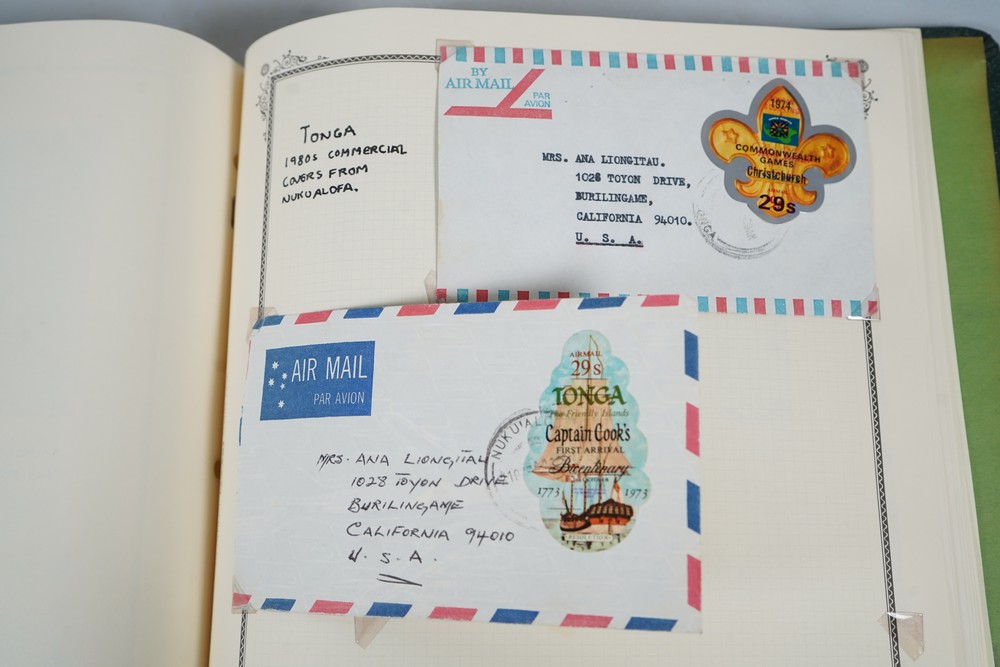 TONGA
1980s COMMERCIAL
COVERS FROM
NUKUALOFA.
BY
AIR MAIL
PAR
AVION
MRS. ANA LIONGITAU.
1028 TOYON DRIVE,
BURILINGAME,
CALIFORNIA 94010.
U. S. A.
1974
COMMONWEALTH
GAMES
Christchurch
29s
TONGA
AIR MAIL
PAR AVION
MRS. ANA LIONGITAU
1028 TOYON DRIVE
BURILINGAME
CALIFORNIA 94010
U. S. A.
NUKU'AL
AIRMAIL
29s
TONGA
The Friendly Islands
Captain Cook's
FIRST ARRIVAL
Bicentenary
1773 1973
RESOLUTION